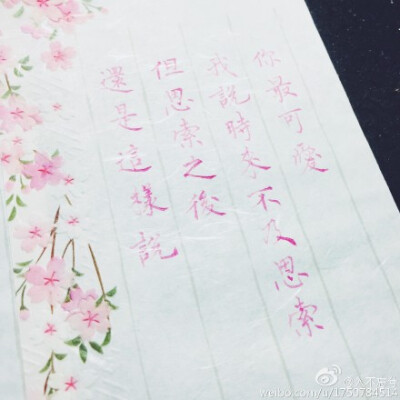 你最可愛
我說時來不及思索
但思索之後
還是這樣說